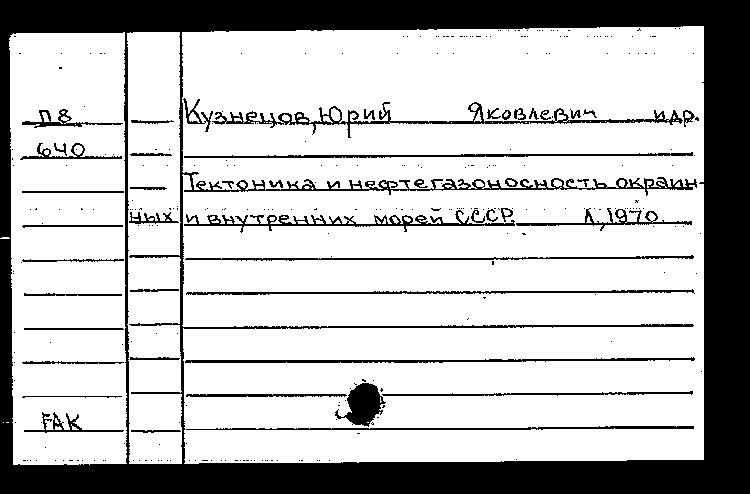 П8 Кузнецов, Юрий Яковлевич и др.
640
Тектоника и нефтегазоносность окраин-
ных и внутренних морей СССР. Л., 1970.
FAK